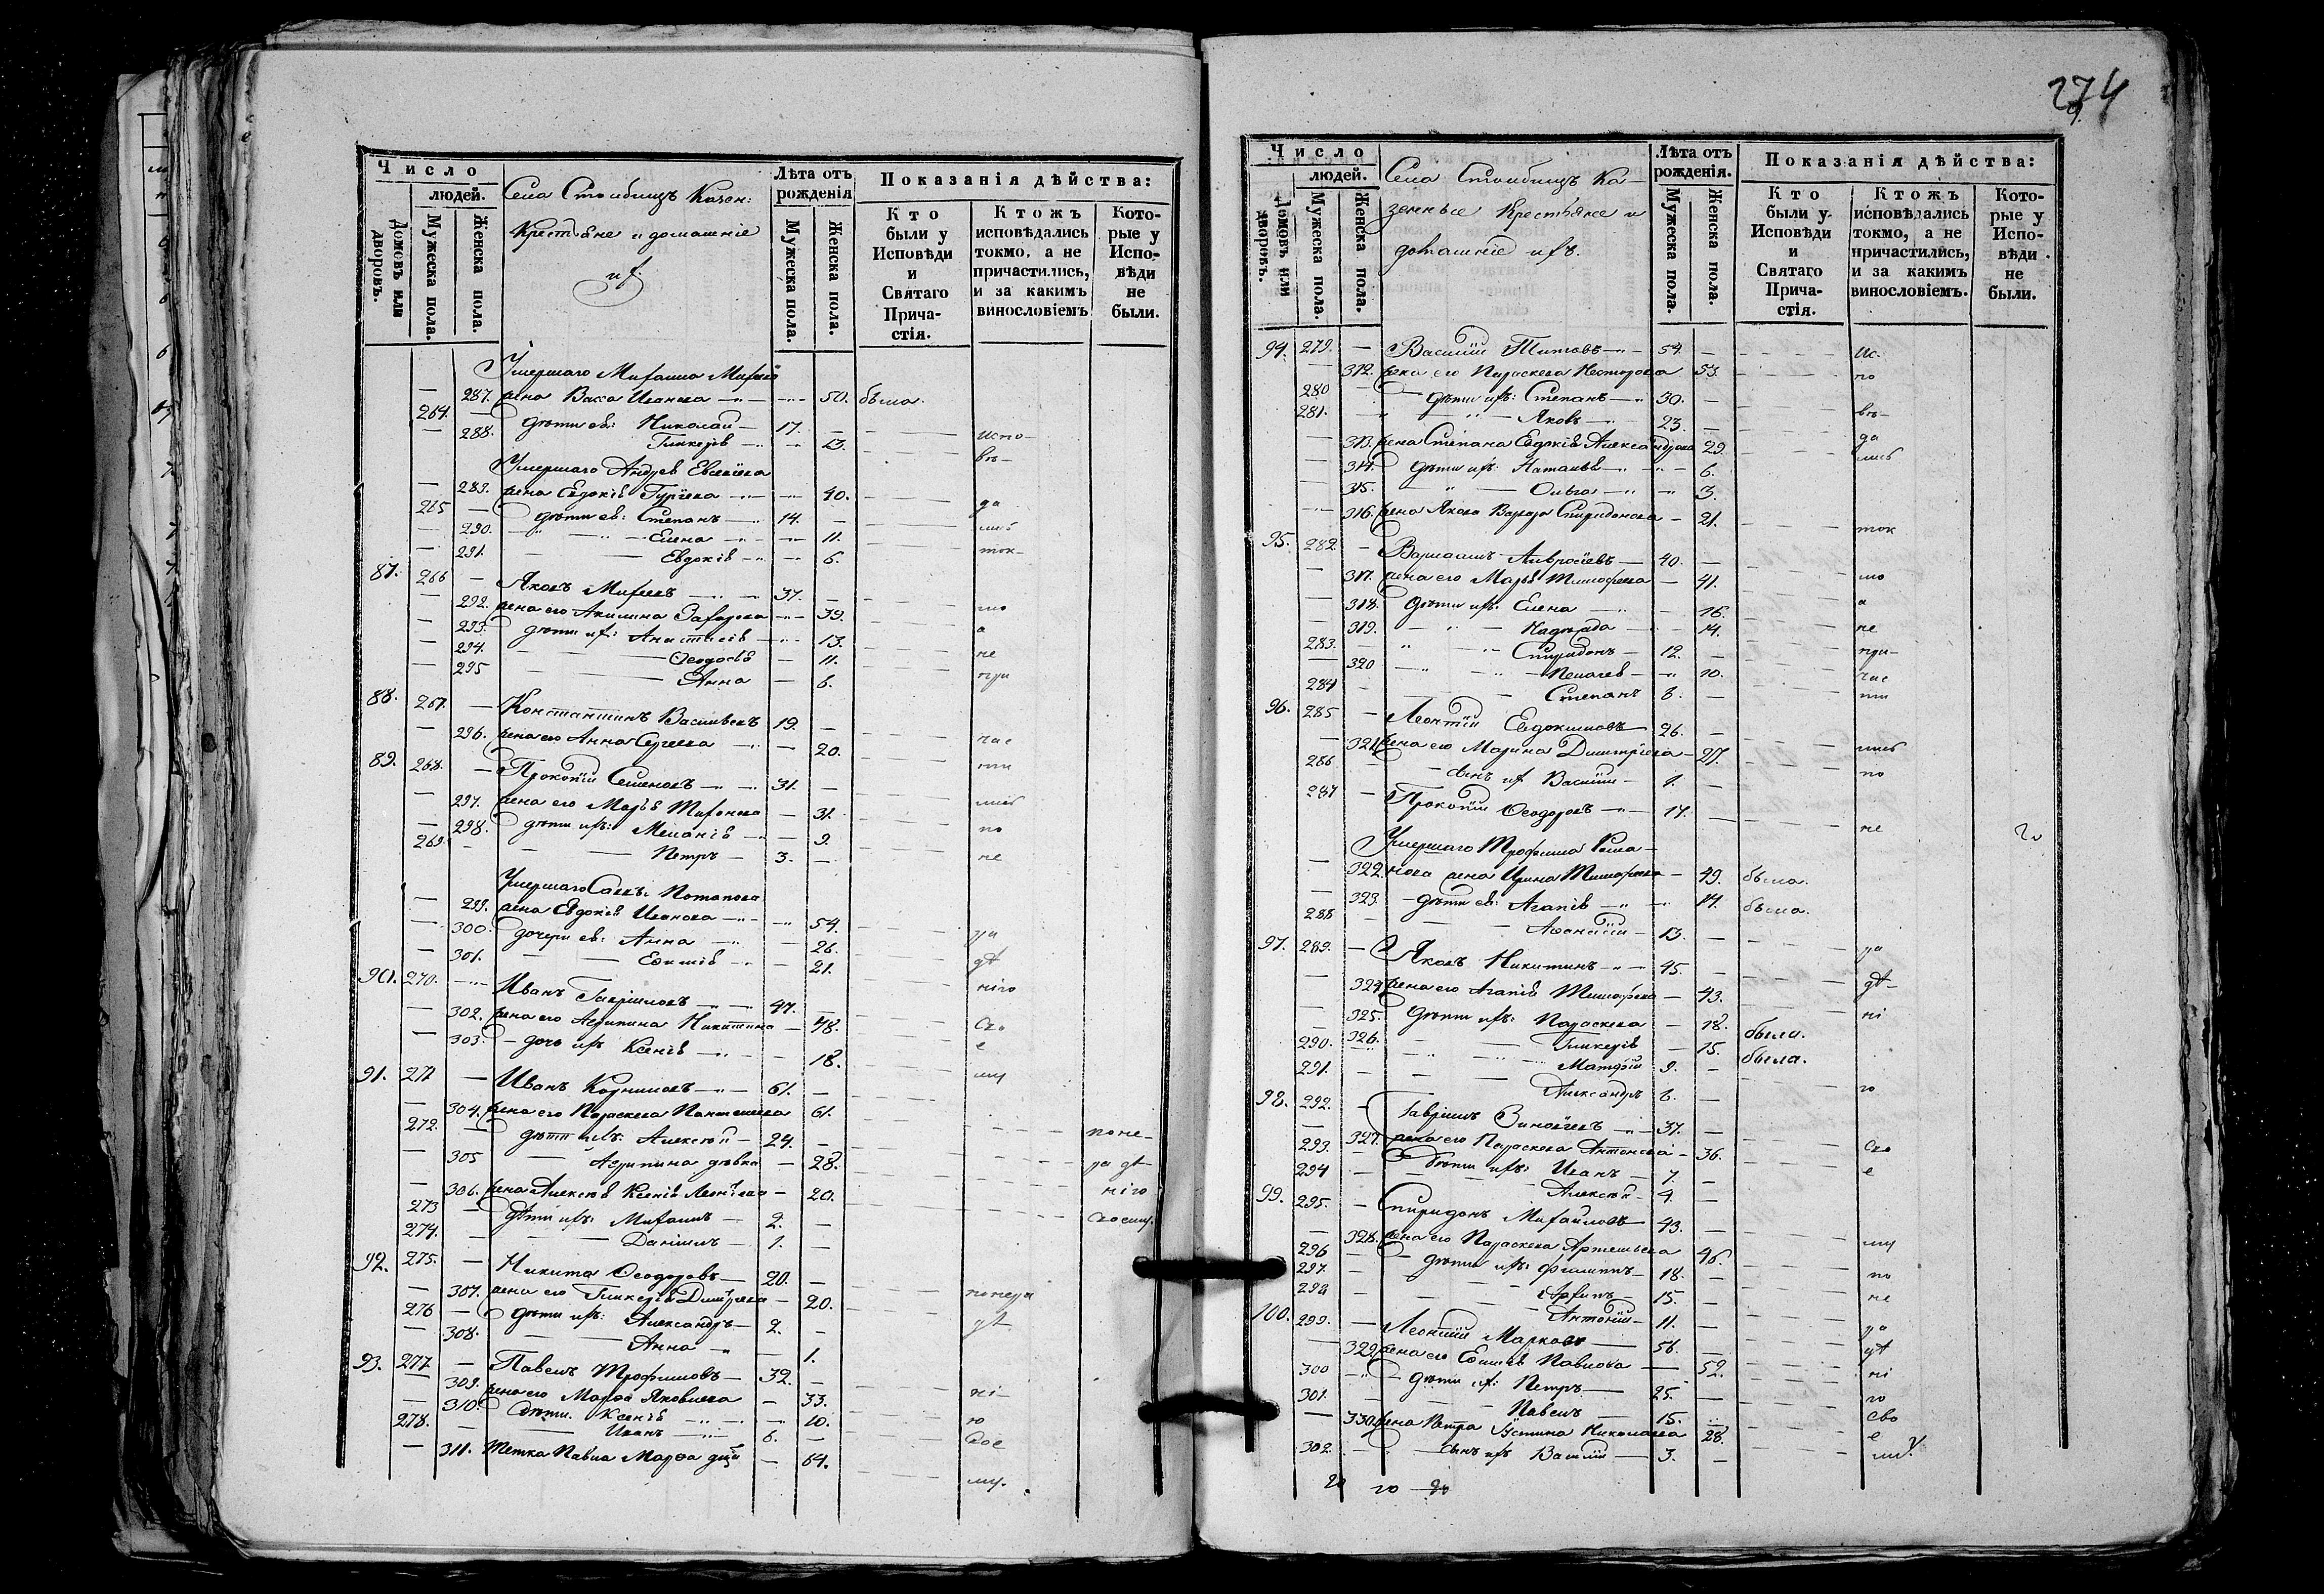 274
Число
людей.
Домовъ или дворовъ.
Мужеска пола.
Женска пола.
Села Столбищъ Казен:
Крестьяне и домашніе
их:
Лѣта отъ рожденія
Мужеска пола.
Женска пола.
Показанія дѣйства:
Кто были у Исповѣди и Святаго Причастія.
Ктожъ исповѣдались токмо, а не причастились, и за какимъ винословіемъ
Которые у Исповѣди не были.
Умершаго Михаила
— 287. жена Васса Иванова 50. была.
264. — дѣти ея: Николай 17. — испо-
— 288. Гликерія 13. вѣ-
Умершаго Андрея Евсеева
— 289. жена Евдокія Гурьева 40. да
265 — дѣти ея: Степанъ 14. — лись
— 290. Елена 11. ток-
— 291. Евдокія 6.
87. 266 — Яковъ 37. — мо
— 292. жена его Акилина Захарова 39. а
— 293. дѣти их: Анастасія 13. не
— 294. Ѳеодосія 11. при
— 295 Анна 6.
88. 267. — Константинъ Васильевъ 19. —
— 296. жена его Анна Сергеева 20. час
89. 268. — Прокопій Семеновъ 31. — ти
— 297. жена его Марья 31. лись
— 298. дѣти ихъ: Меланія 9. по
269. — Петръ 3. — не
Умершаго Саввы Потапова
— 299. жена Евдокія Иванова 54. ра
— 300. дочери ея: Анна 26. дѣ
— 301. Евфимія 21. нію
90. 270. — Иванъ Гавриловъ 47. —
— 302. жена его Агрипина Никитина 48. Сво
— 303. дочь ихъ Ксенія 18. е
91. 271 — Иванъ Корниловъ 61. — му
— 304. жена его Параскева Пантелеева 61.
272. — дѣти ихъ: Алексѣй 24. — поне-
— 305 Агрипина дѣвка 28. ра дѣ
— 306. жена Алексѣя Ксенія Леонтіева 20. нію
273 — дѣти ихъ: Михаилъ 2. — Своему.
274. — Даніилъ 1. —
92. 275. — Никита Ѳеодоровъ 20. —
— 307. жена его Гликерія Димитріева 20. понера
276 — дѣти ихъ: Александръ 2. — дѣ
— 308. Анна 1.
93. 277 — Павелъ Трофимовъ 32. —
— 309. жена его Марѳа Яковлева 33. ні-
— 310. дѣти. Ксенія 10. ю
278. — Иванъ 6. — Свое
— 311. Тетка Павла Марѳа 64. му.
Число
людей.
Домовъ или дворовъ.
Мужеска пола.
Женска пола.
Села Столбищъ Ка-
зенные Крестьяне и
домашніе ихъ.
Лѣта отъ рожденія.
Мужеска пола.
Женска пола.
Показанія дѣйства:
Кто были у Исповѣди и Святаго Причастія.
Ктожъ исповѣдались токмо, а не причастились, и за какимъ винословіемъ.
Которые у Исповѣди не были.
94. 279. — Василій Титовъ 54. — ис.
— 312. жена его Параскева Несторова 53. по
280 — дѣти ихъ: Степанъ 30. —
281. — Яковъ 23. — вѣ-
— 313. жена Степана Евдокія Александрова 29. да
— 314. дѣти ихъ: Наталья 6. лись
— 315. Ольга 3.
— 316. жена Якова Варвара Спиридонова 21. ток
95. 282. — Варлаамъ 40. —
— 317. жена его Марья Тимофеева 41. мо
— 318. дѣти ихъ: Елена 16. а
— 319. Надежда 14. не
283. — Спиридонъ 12. — при-
— 320 Пелагея 10. час
284 — Степанъ 8. — ти
96. 285 — Леонтій Евдокимовъ 26. —
— 321 жена его Марина Димитріева 27. лись
286. — сынъ их Василій 1. — по
287 — Прокопій Ѳеодоровъ 17. —
не
Умершаго Трофима Рома-
— 322. нова жена Ирина Тимофеева 49. была.
— 323. дѣти ея: Агапія 14. была.
288 — Аѳанасій 13. —
97. 289. — Яковъ Никитинъ 45. — ра
— 324 жена его Агапія Тимофеева 43. дѣ-
— 325. дѣти ихъ: Параскева 18. была. ні
— 326. Гликерія 15. была.
290. — Матѳей 9. —
291. — Александръ 6. — ю
98. 292. — Гавріилъ 37. —
— 327. жена его Параскева Антонова 36. Сво
293. — дѣти ихъ: Иванъ 7. — е
294 — Алексѣй 4. —
99. 295. — Спиридонъ Михайловъ 43. —
— 328. жена его Параскева Артемьева 46. му
296 — дѣти ихъ: Филиппъ 18. — по
297. — 15. — не
298 — Антоній 11. —
100. 299. — Леонтій Марковъ 56. — ра
— 329 жена его Евфимія Павлова 52. дѣ
300 — дѣти их: Петръ 25. — ні
301. — Павелъ 15. — ю
— 330 жена Петра Устина Николаева 28. Сво
302. — сынъ ихъ Василій 3. — ему.
20 20